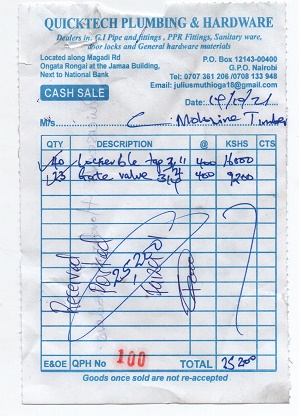 QUICKTECH PLUMBING & HARDWARE
Dealers in: G.I Pipe and fittings , PPR Fittings, Sanitary ware,
door locks and General hardware materials
Located along Magadi Rd
Ongata Rongai at the Jamaa Building,
Next to National Bank
P.O. Box 12143-00400
G.P.O. Nairobi
Tel: 0707 361 206/0708 133 948
Email: juliusmuthioga18@gmail.com
CASH SALE
Date: 19/10/21
M/s
QTY DESCRIPTION @ KSHS CTS
40 Lockerble tap 3/4" 400 16000
23 Gate valve 3/4" 400 9200
Received
25200
E&OE QPH No 100 TOTAL 25200
Goods once sold are not re-accepted